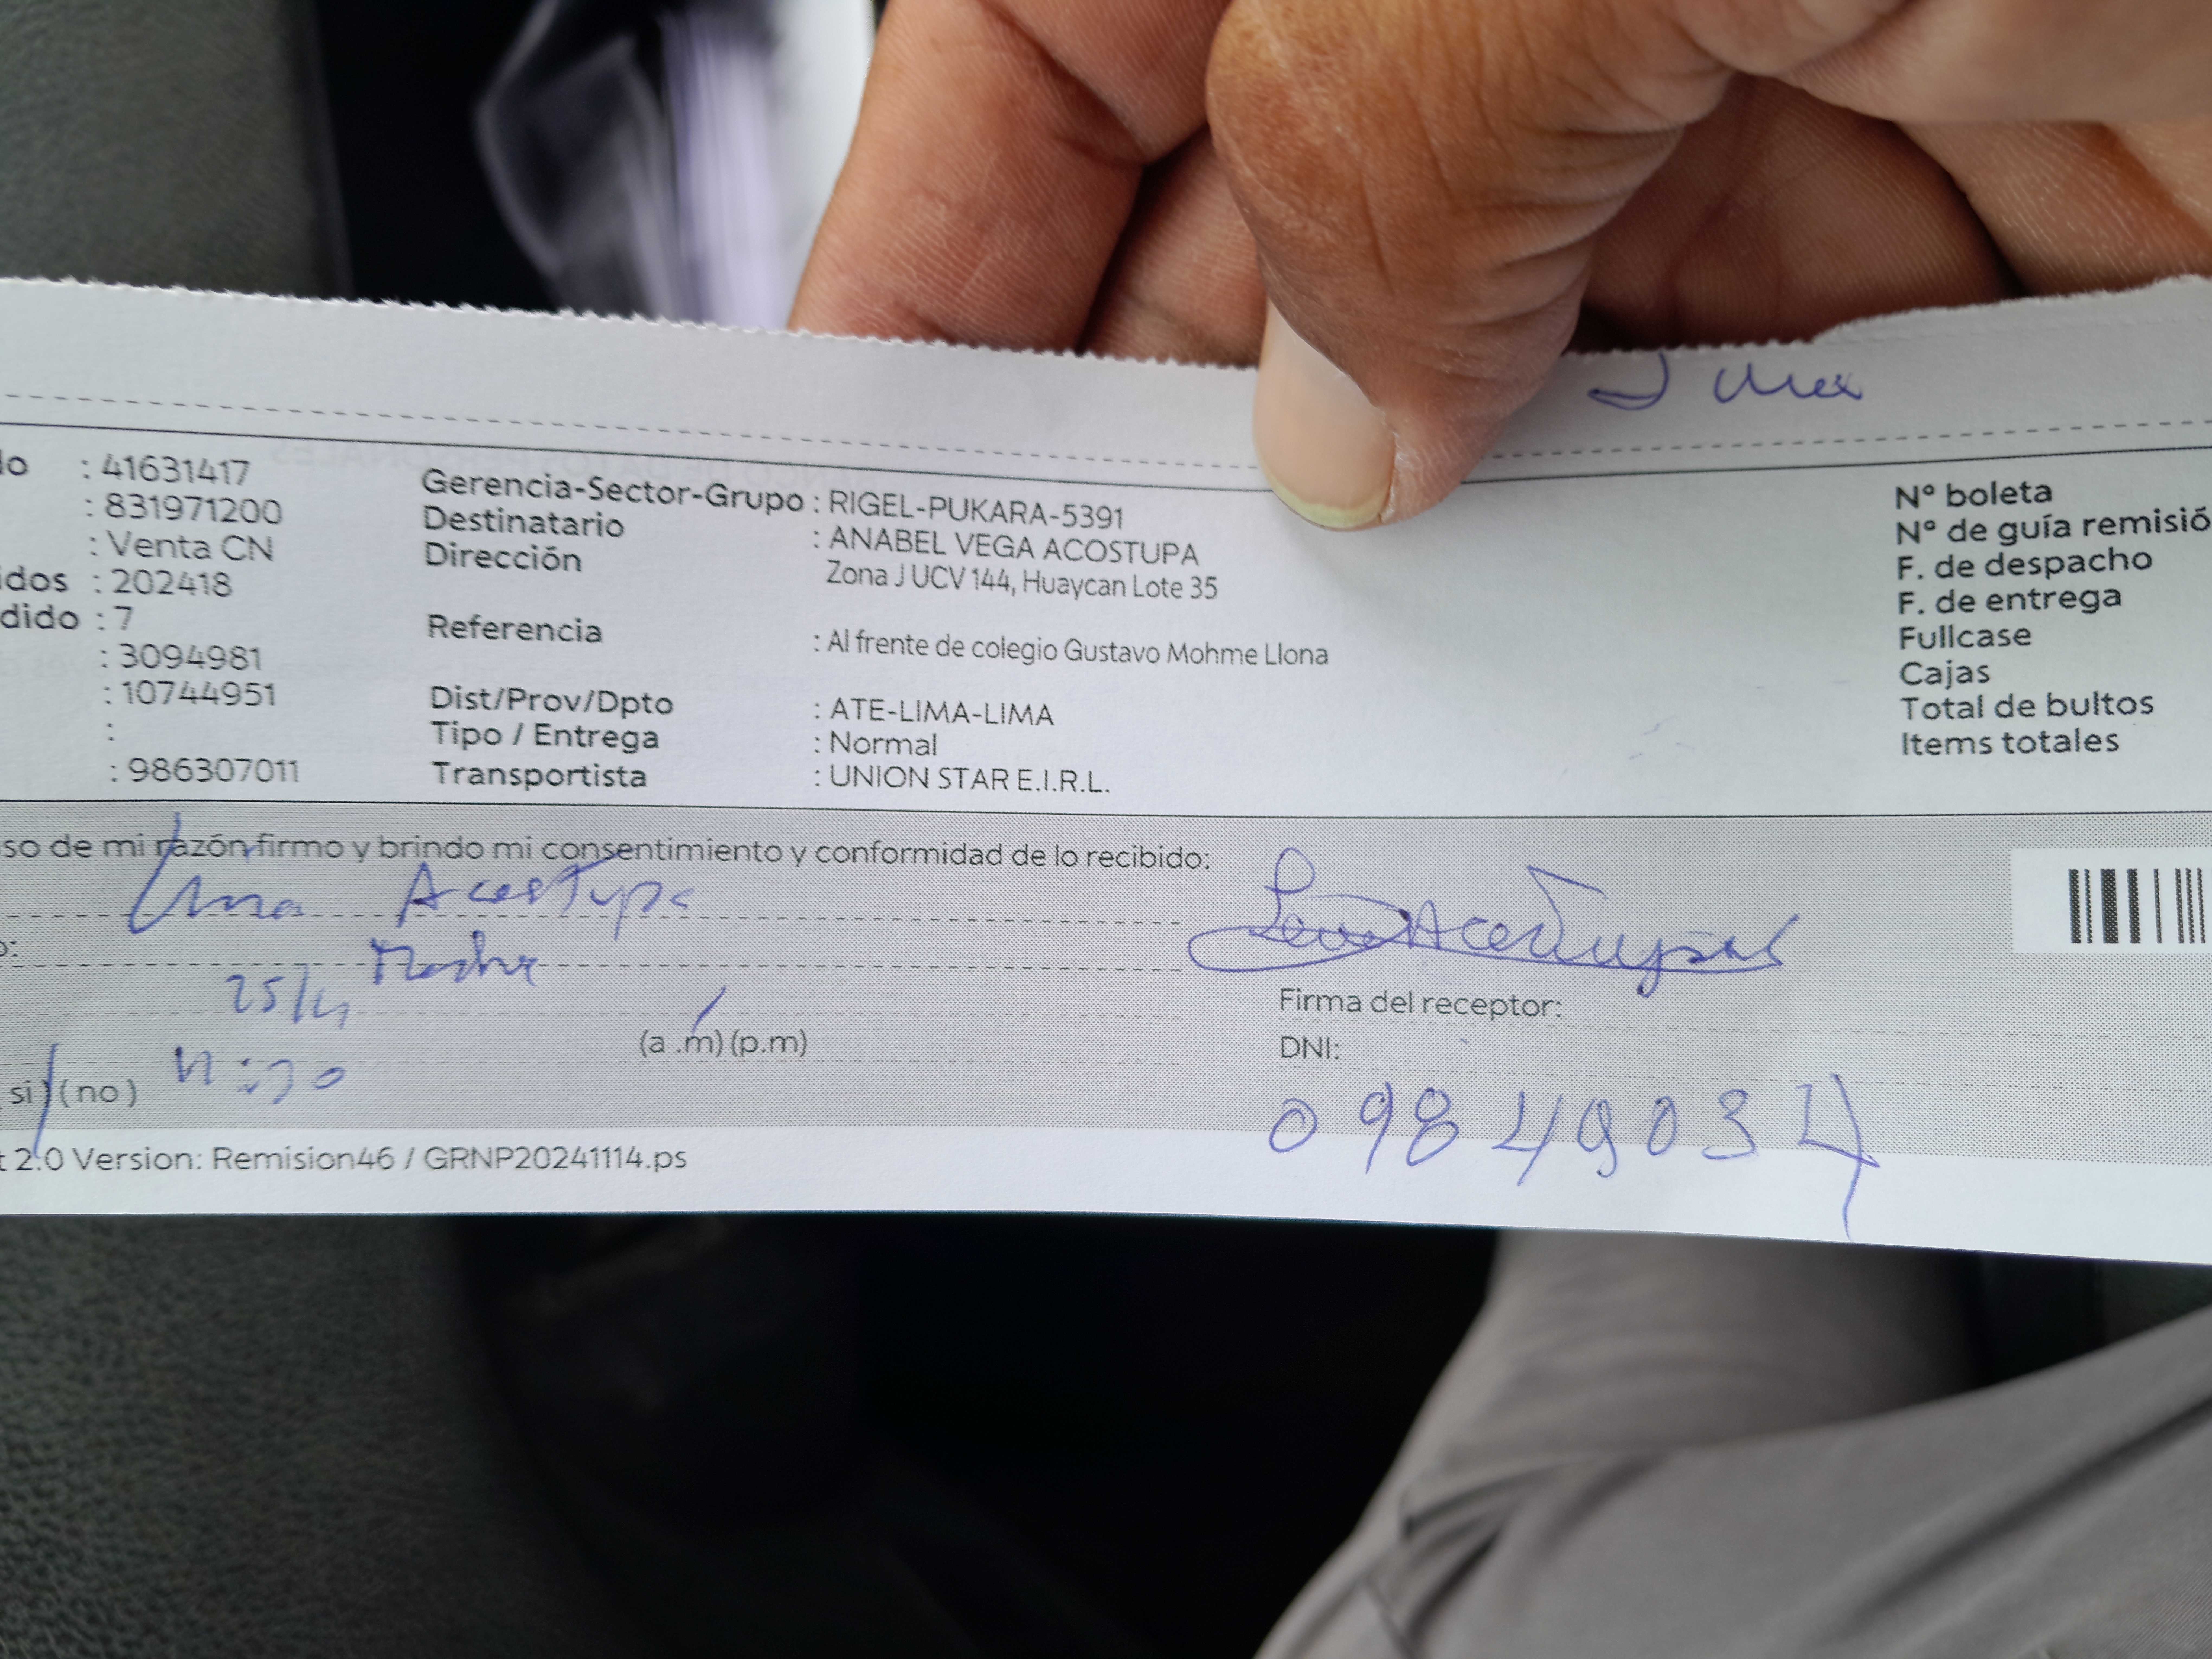 lo : 41631417
: 831971200
: Venta CN
idos : 202418
dido : 7
: 3094981
: 10744951
:
: 986307011
Gerencia-Sector-Grupo : RIGEL-PUKARA-5391
Destinatario : ANABEL VEGA ACOSTUPA
Dirección Zona J UCV 144, Huaycan Lote 35
Referencia : Al frente de colegio Gustavo Mohme Llona
Dist/Prov/Dpto : ATE-LIMA-LIMA
Tipo / Entrega : Normal
Transportista : UNION STAR E.I.R.L.
N° boleta
N° de guía remisió
F. de despacho
F. de entrega
Fullcase
Cajas
Total de bultos
Items totales
so de mi razón firmo y brindo mi consentimiento y conformidad de lo recibido:
Acostupa
o:
Madre
25/11
(a .m) (p.m)
si) (no)
Firma del receptor:
DNI:
t 2.0 Version: Remision46 / GRNP20241114.ps